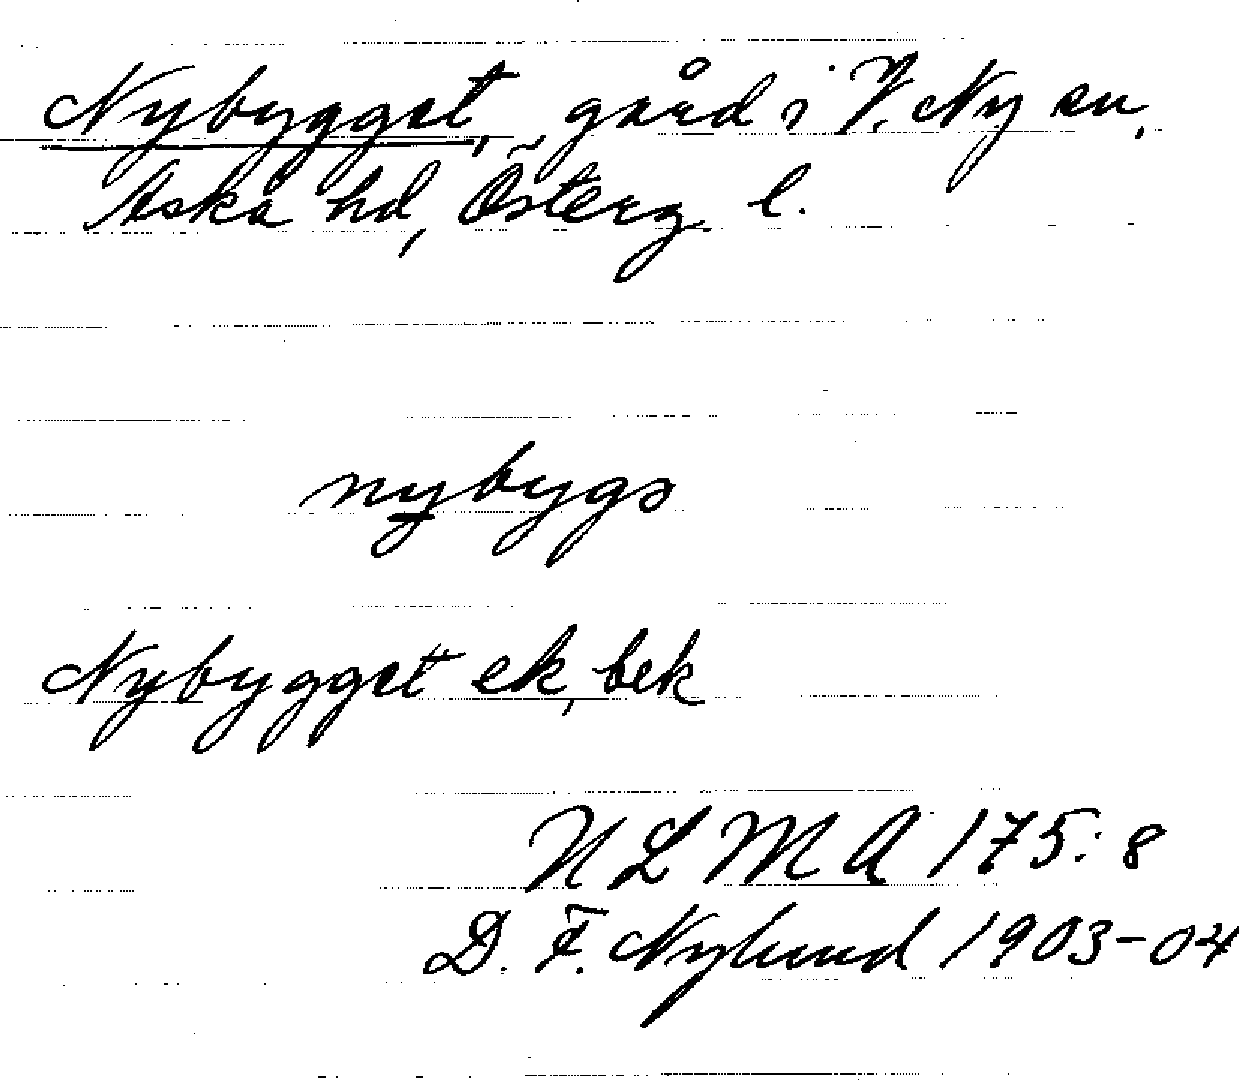 Nybygget, gård i V. Ny sn,
Aska hd, Österg. l.
nybygə
Nybygget ek, bek
ULMA 175:8
D. F. Nylund 1903-04